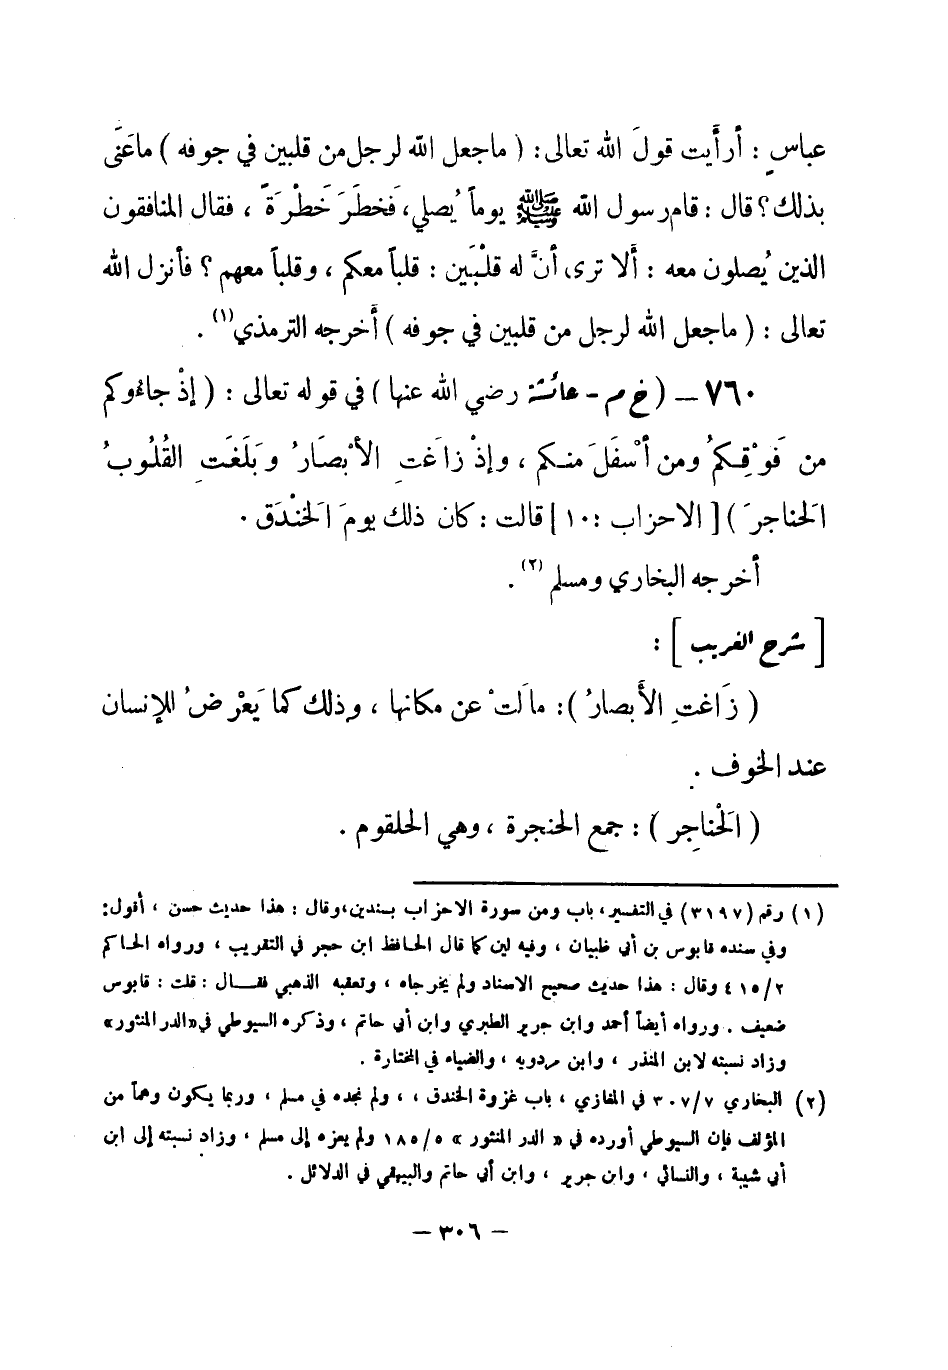 عباسٍ : أرأَيت قولَ الله تعالى: ( ماجعل الله لرجل من قلبين في جوفه ) ماعَنَى
بذلك؟ قال : قام رسول الله ﷺ يوماً يُصلي، فَخطَرَ خَطْرَةً ، فقال المنافقون
الذين يُصلون معه : أَلا ترى أنَّ له قلْبَين : قلباً معكم ، وقلباً معهم ؟ فأنزل الله
تعالى : ( ماجعل الله لرجل من قلبين في جوفه ) أَخرجه الترمذي(١) .
٧٦٠ – ( خ م - عائشة رضي الله عنها ) في قوله تعالى : ( إذْ جاءوكم
من فَوْقِكمُ ومن أسْفَلَ منكم ، وإذْ زاغَتِ الأبْصَارُ وبَلَغَتِ القُلُوبُ
الحَناجرَ ) [ الاحزاب : ١٠ ] قالت : كان ذلك يومَ الخَنْدَق .
أخرجه البخاري ومسلم (٢) .
[ شرح الغريب ] :
( زَاغتِ الأَبصارُ ) : مالَتْ عن مكانها ، وذلك كما يَعْرِضُ للإنسان
عند الخوف .
( الحَْناجِر ) : جمع الحنجرة ، وهي الحلقوم .
(١) رقم (٣١٩٧) في التفسير، باب ومن سورة الاحزاب بسندين، وقال : هذا حديث حسن ، أقول:
وفي سنده قابوس بن أبي ظبيان ، وفيه لين كما قال الحافظ ابن حجر في التقريب ، ورواه الحاكم
٤١٥/٢ وقال : هذا حديث صحيح الاسناد ولم يخرجاه ، وتعقبه الذهبي فقـــال : قلت : قابوس
ضعيف . ورواه أيضاً أحمد وابن جرير الطبري وابن أبي حاتم ، وذكره السيوطي في «الدر المنثور»
وزاد نسبته لابن المنذر ، وابن مردويه ، والضياء في المختارة .
(٢) البخاري ٣٠٧/٧ في المغازي ، باب غزوة الخندق ، ، ولم نجده في مسلم ، وربما يكون وهماً من
المؤلف فإن السيوطي أورده في « الدر المنثور » ١٨٥/٥ ولم يعزه إلى مسلم ، وزاد نسبته إلى ابن
أبي شيبة ، والنسائي ، وابن جرير ، وابن أبي حاتم والبيهقي في الدلائل .
– ٣٠٦ –